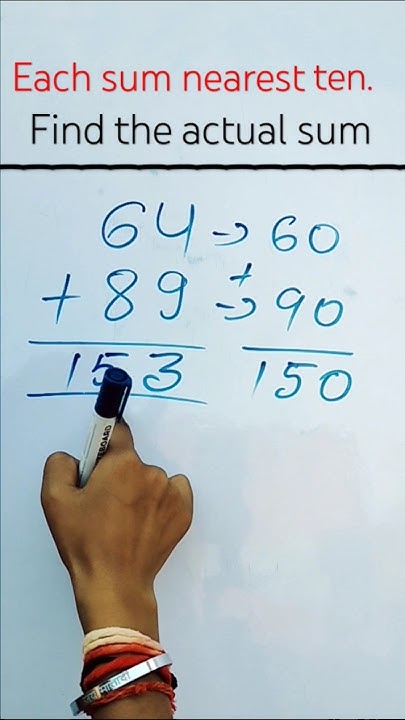 Each sum nearest ten.
Find the actual sum
64 → 60
+
+ 89 → 90
153 150